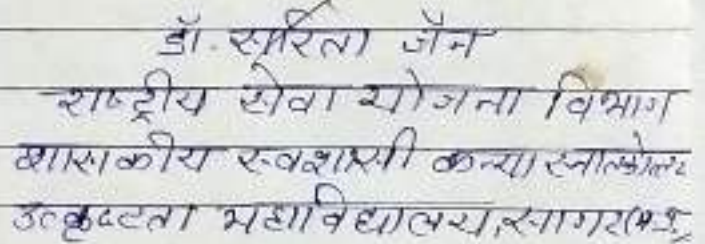 डॉ. सरिता जैन
राष्ट्रीय सेवा योजना विभाग
शासकीय स्वशासी कन्या स्नातकोत्तर
उत्कृष्टता महाविद्यालय, सागर (म.प्र.)